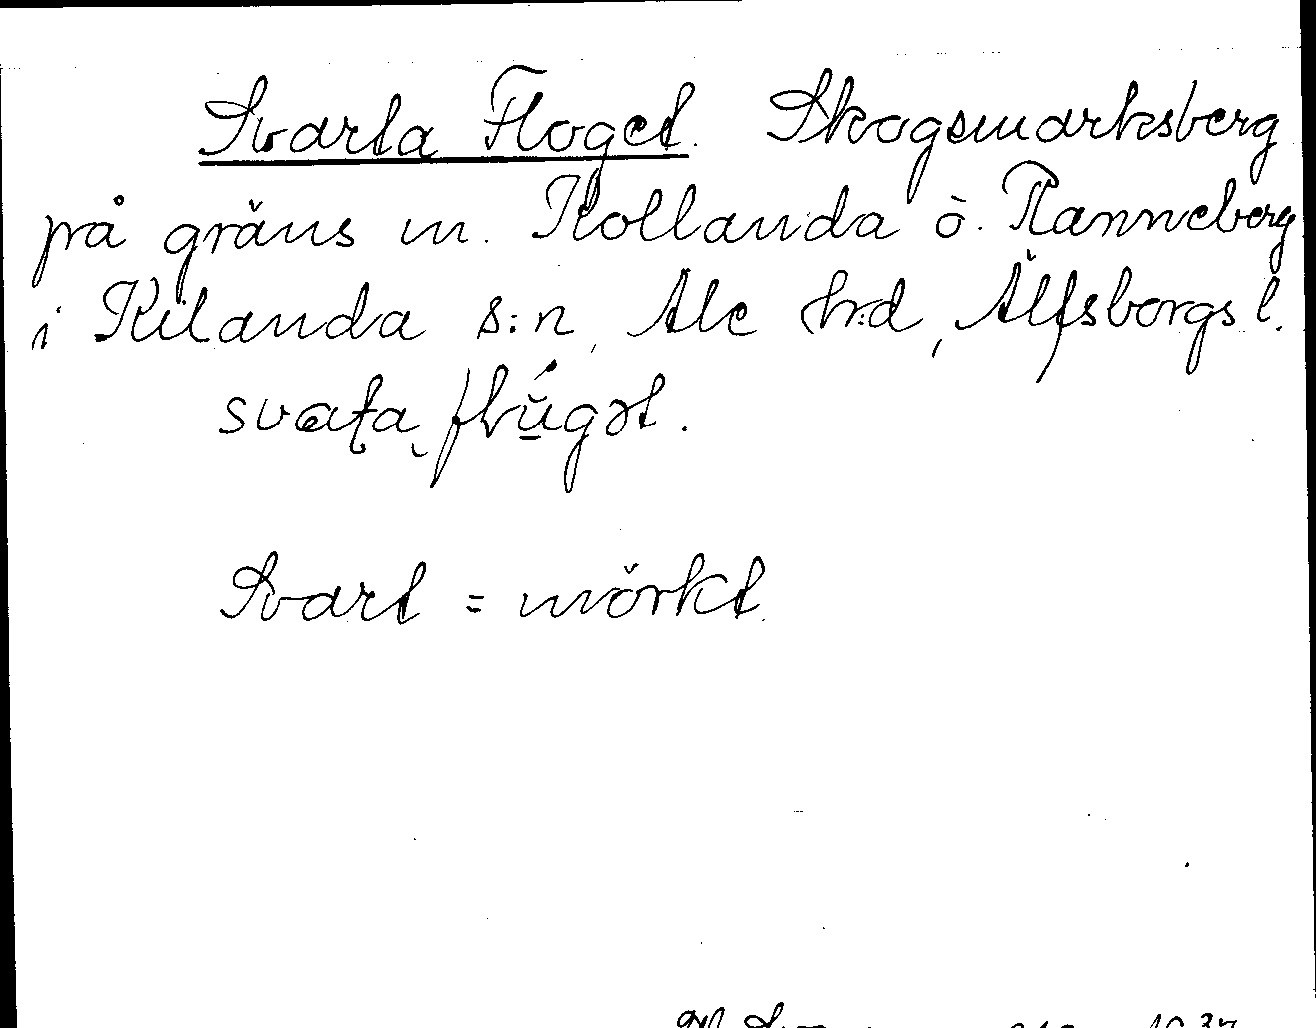 Svarta Floget. Skogsmarksberg
på gräns m. Kollanda o. Ranneberg
i Kilanda s:n, Ale h:d, Älfsborgs l.
svata flúgət.
Svart = mörkt